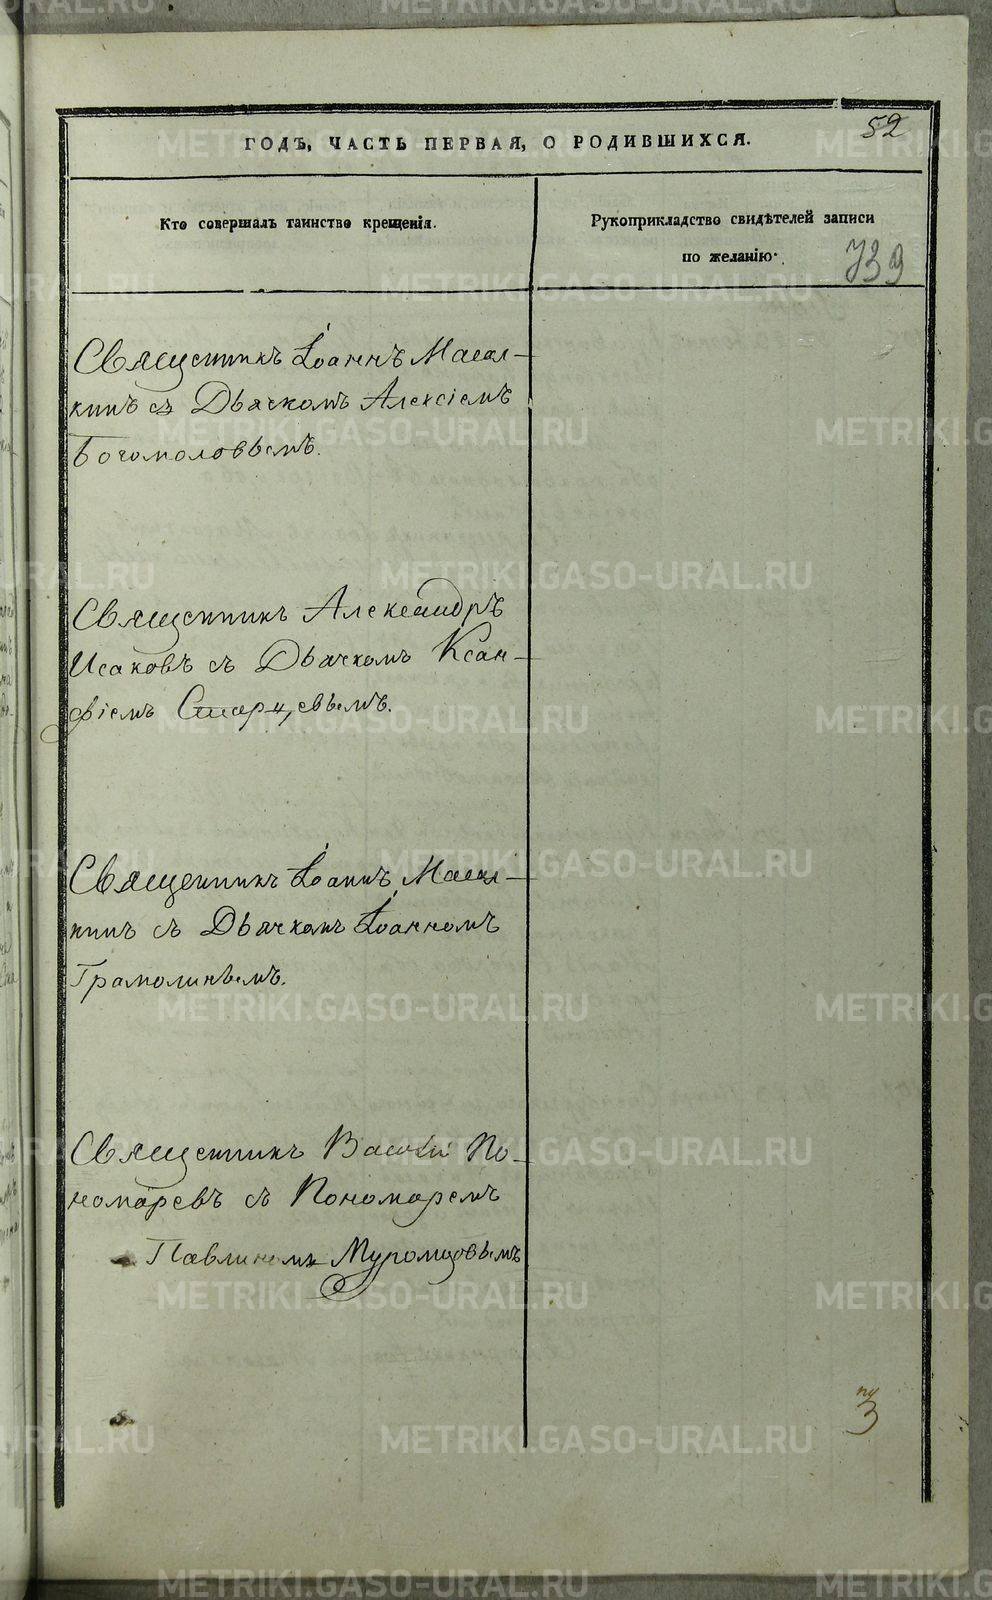 52
ГОДЪ, ЧАСТЬ ПЕРВАЯ, О РОДИВШИХСЯ.
Кто совершалъ таинство крещенія.
Рукоприкладство свидѣтелей записи
по желанію.
739
Священникъ Іоаннъ Масал-
кинъ съ Дьячкомъ Алексіемъ
Богомоловымъ.
Священникъ Александръ
Исаковъ съ Дьячкомъ Ксан-
фіемъ Старцевымъ.
Священникъ Іоаннъ Масал-
кинъ съ Дьячкомъ Іоанномъ
Грамолинымъ.
Священникъ Василій По-
номаревъ съ Пономаремъ
Павлиномъ Муромцовымъ
3
METRIKI.GASO-URAL.RU